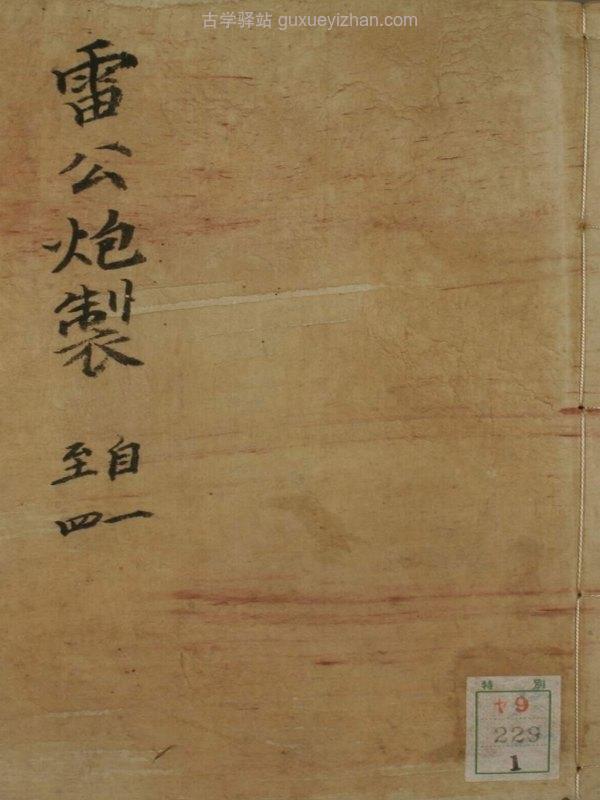 古学驿站 guxueyizhan.com
雷公炮製
自一
至四
特別
ヤ9
229
1